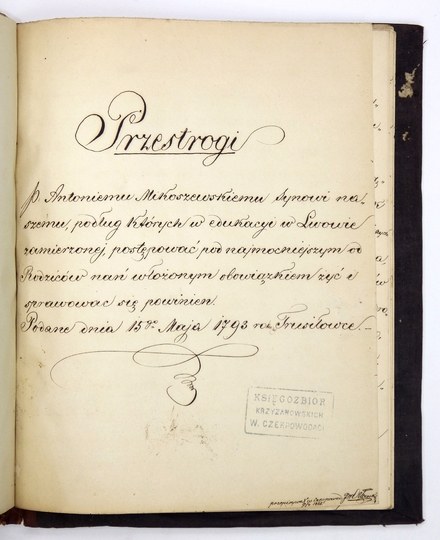 Przestrogi
P. Antoniemu Mikoszewskiemu Synowi na,
szemu, podług których w edukacyi w Lwowie
zamierzonej, postępować pod najmocniejszym od
Rodziców nań włożonym obowiązkiem żyć i
sprawować się powinien.
Podane dnia 15go Maja 1793 w Trusiłowce.
KSIĘGOZBIÓR
KRZYŻANOWSKICH
W CZERPOWODACH